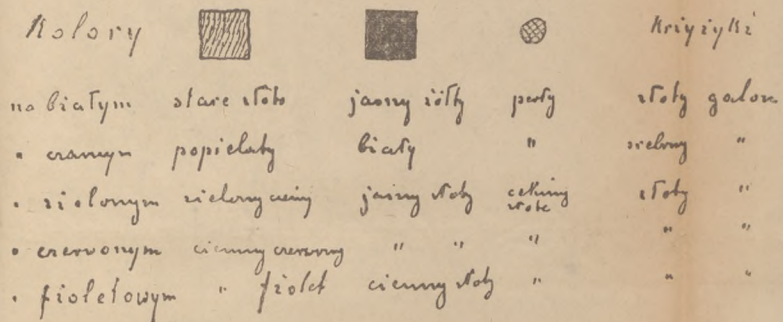 Kolory Krzyżyki
na białym stare złoto jasny żółty perły złoty galon
" czarnym popielaty biały " srebrny "
" zielonym zielony ciemny jasny złoty cekiny złote złoty "
" czerwonym ciemny czerwony " " " " "
" fioletowym " fiolet ciemny złoty " " "